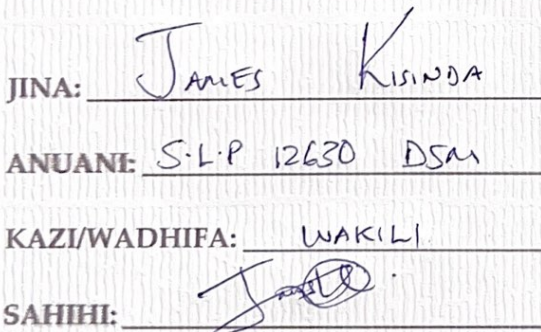 JINA: JAMES KISINDA
ANUANI: S.L.P 12630 DSM
KAZI/WADHIFA: WAKILI
SAHIHI: